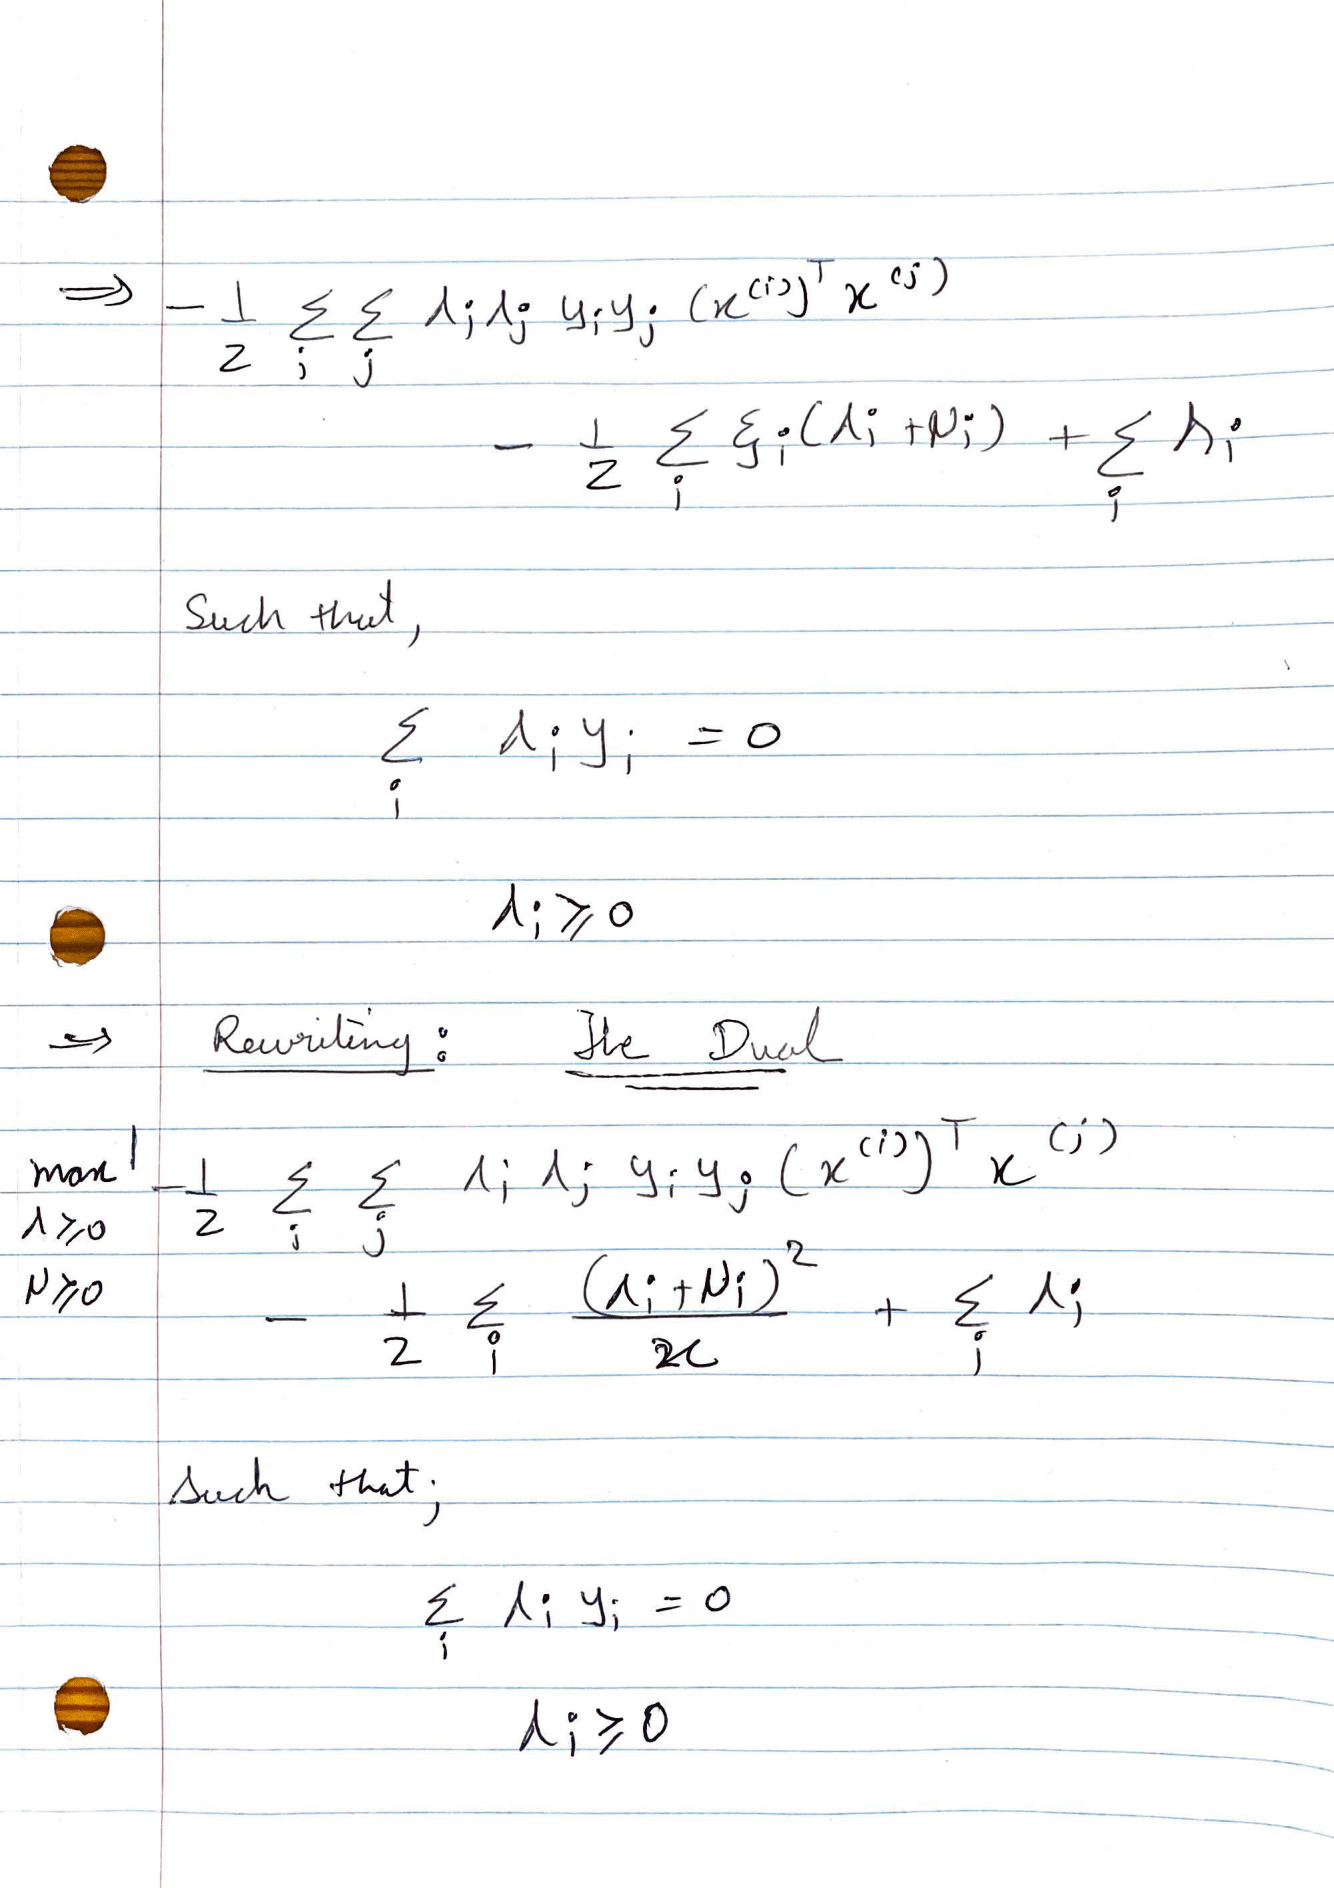 ⇒ -1/2 Σ_i Σ_j λ_i λ_j y_i y_j (x^(i))^T x^(j)
- 1/2 Σ_i ξ_i (λ_i + μ_i) + Σ_i λ_i
Such that,
Σ_i λ_i y_i = 0
λ_i ≥ 0
⇒ Rewriting: The Dual
max λ≥0 μ≥0 -1/2 Σ_i Σ_j λ_i λ_j y_i y_j (x^(i))^T x^(j)
- 1/2 Σ_i (λ_i + μ_i)^2 / 2c + Σ_i λ_i
Such that;
Σ_i λ_i y_i = 0
λ_i ≥ 0